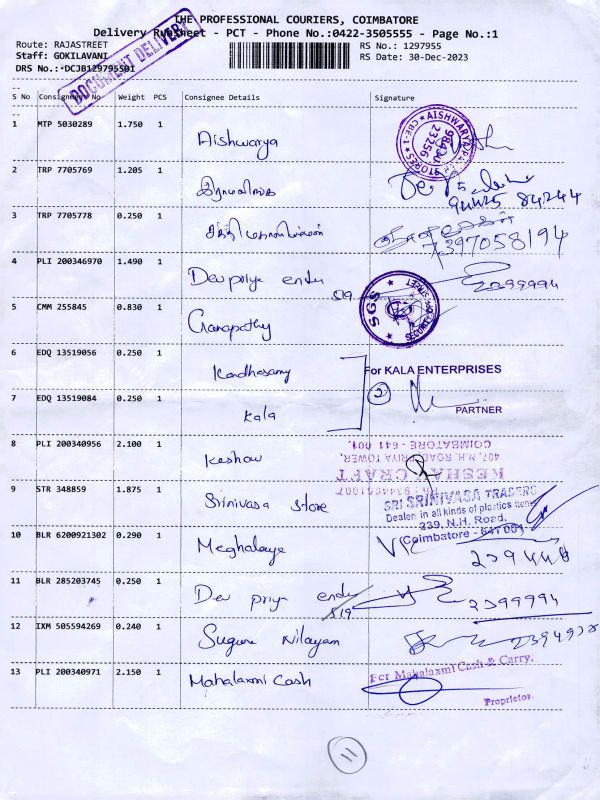 THE PROFESSIONAL COURIERS, COIMBATORE
Delivery Runsheet - PCT - Phone No.:0422-3505555 - Page No.:1
Route: RAJASTREET
RS No.: 1297955
Staff: GOKILAVANI
RS Date: 30-Dec-2023
DRS No.: DCJB1297955D1
DOCUMENT DELIVERY
S No Consignment No Weight PCS Consignee Details Signature
1 MTP 5030289 1.750 1 Aishwarya
AISHWARYA STORES CBE-1 98430 23256
2 TRP 7705769 1.205 1
94425 84244
3 TRP 7705778 0.250 1
7397058194
4 PLI 200346970 1.490 1 Devpriya 519 2399994
5 CMM 255845 0.830 1 Ganapathy SGS
6 EDQ 13519056 0.250 1 Kandhasamy
For KALA ENTERPRISES
7 EDQ 13519084 0.250 1 Kala 2
PARTNER
8 PLI 200340956 2.100 1 Keshav
KESHAV CRAFT
407, N.H. ROAD, PRIYA TOWER,
COIMBATORE - 641 001.
9 STR 348859 1.875 1 Srinivasa Store
SRI SRINIVASA TRADERS
Dealen in all kinds of plastics items
239, N.H. Road,
Coimbatore - 641 001
10 BLR 6200921302 0.290 1 Meghalaya
2394448
11 BLR 285203745 0.250 1 Dev priya 519 2399994
12 IXM 505594269 0.240 1 Suguna Nilayam
13 PLI 200340971 2.150 1 Mahalaxmi Cash
For Mahalaxmi Cash & Carry.
Proprietor.
11